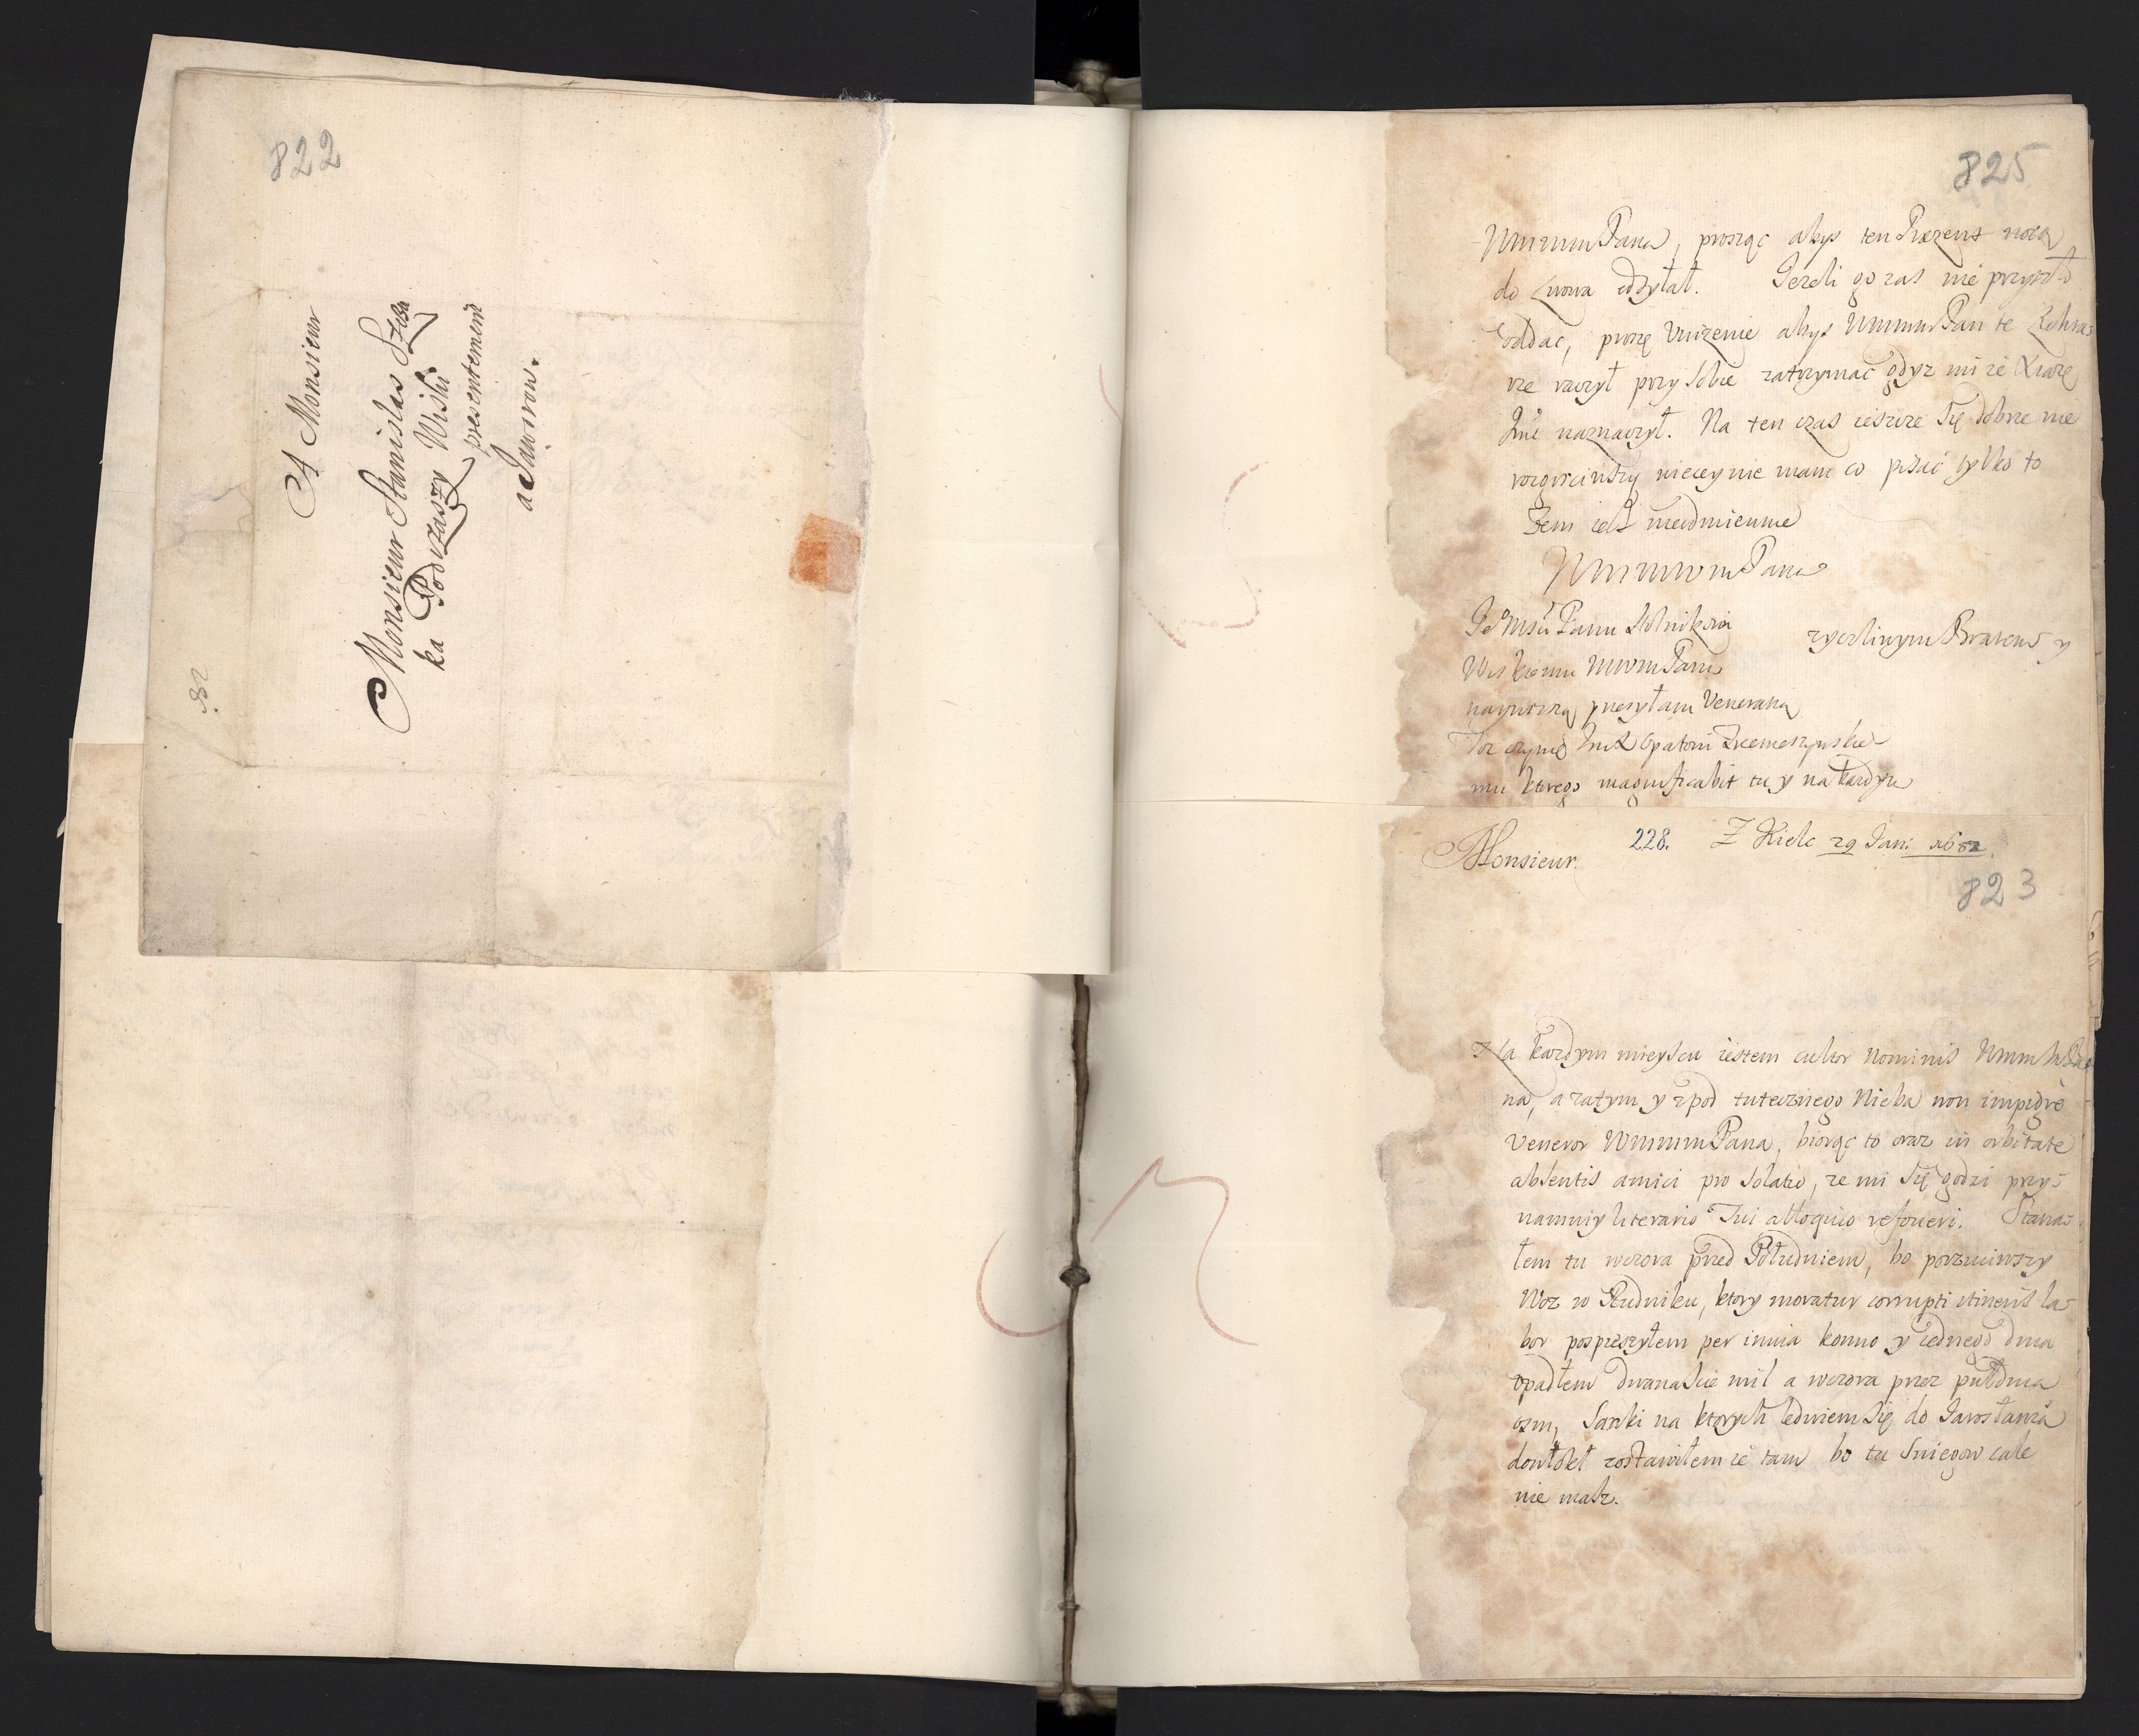 822
A Monsieur
Monsieur Stanislas Szczu
ka Podczaszy Wiski
presentement
a Jaworow.
82
825
WmmmPana, prosząc abys ten Prezent nocą
do Lwowa odzyłał. Jezeli go zas nie przyszło
oddac, proszę Unizenie abys WmmmPan te
rze raczył przy sobie zatrzymac gdyz mi ie Xiąze
Imć naznaczył. Na ten czas ieszcze się dobrze nie
rozgosciwszy wiecey nie mam co pisać tylko to
Zem iest nieodmiennie
WmmwmPana
Je Msći Panu Stolnikowi
zyczliwym Bratem y
Wiskiemu MwmPanu
naynizszą przesyłam Veneraną
Toz czynię ImX Opatowi
mu ktorego magnificabit tu y na kazdym
Monsieur.
228. Z Kielc 29 Jan: 1682.
823
Na kazdym mieyscu iestem cultor Nominis WmmmPa
na, a zatym y zpod tutecznego Nieba non impigrè
Veneror WmmmPana, biorąc to oraz in orbitate
absentis amici pro solatio, ze mi się godzi przy-
namniy literario Tui alloquio refoveri. Stana-
łem tu wczora przed Południem, bo porzuciwszy
Woz w Rudniku, ktory moratur corrupti itineris la-
bor pospieszyłem per invia konno y iednego dnia
vpadłem dwanascie mil a wczora przez pułdnia
osm, Sanki na ktorych ledwiem się do Jarosławia
dowlokł zostawiłem ie tam bo tu sniegow cale
nie masz.